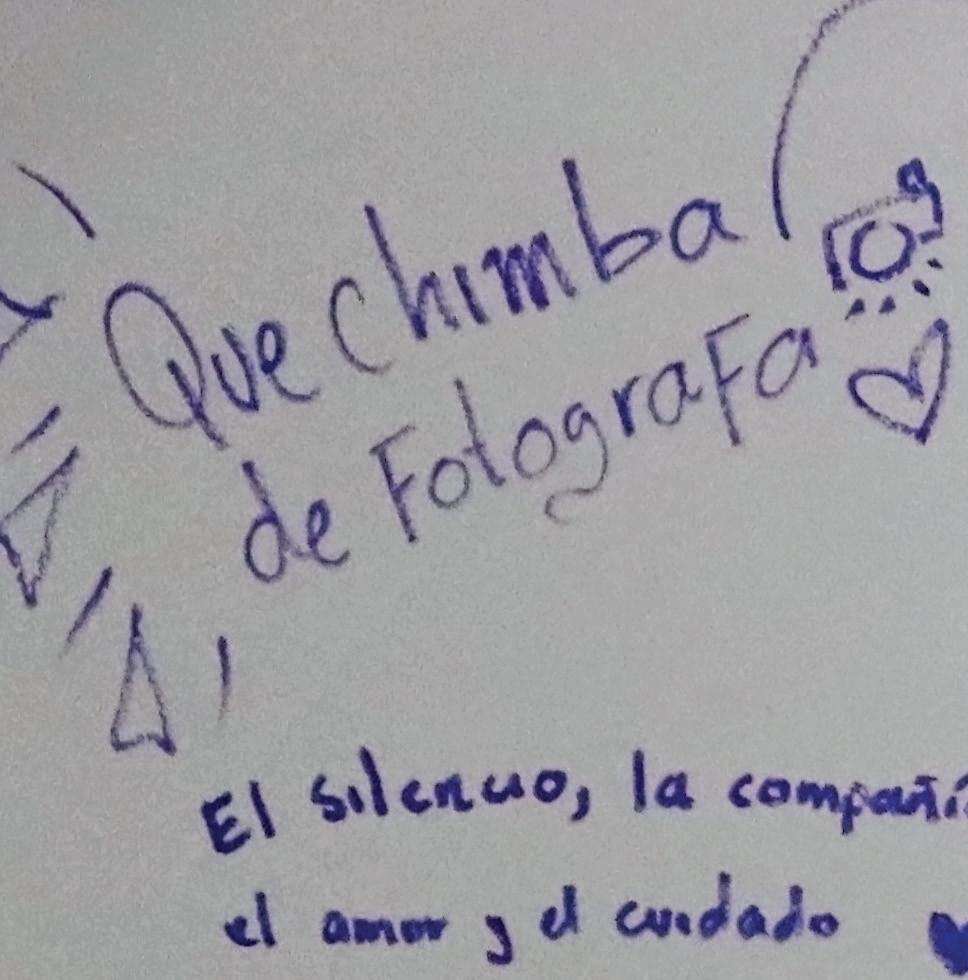 Que chimba
de Fotografa
El silencio, la compañi
el amor y el cuidado